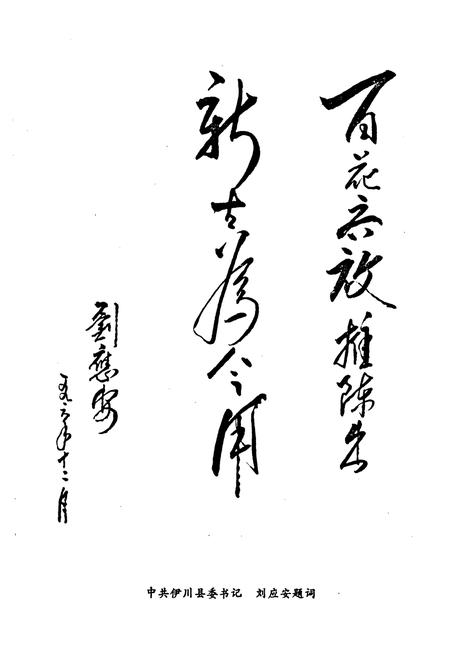 百花齐放推陈出
新古为今用
劉應安
一九八六年十二月
中共伊川县委书记 刘应安题词